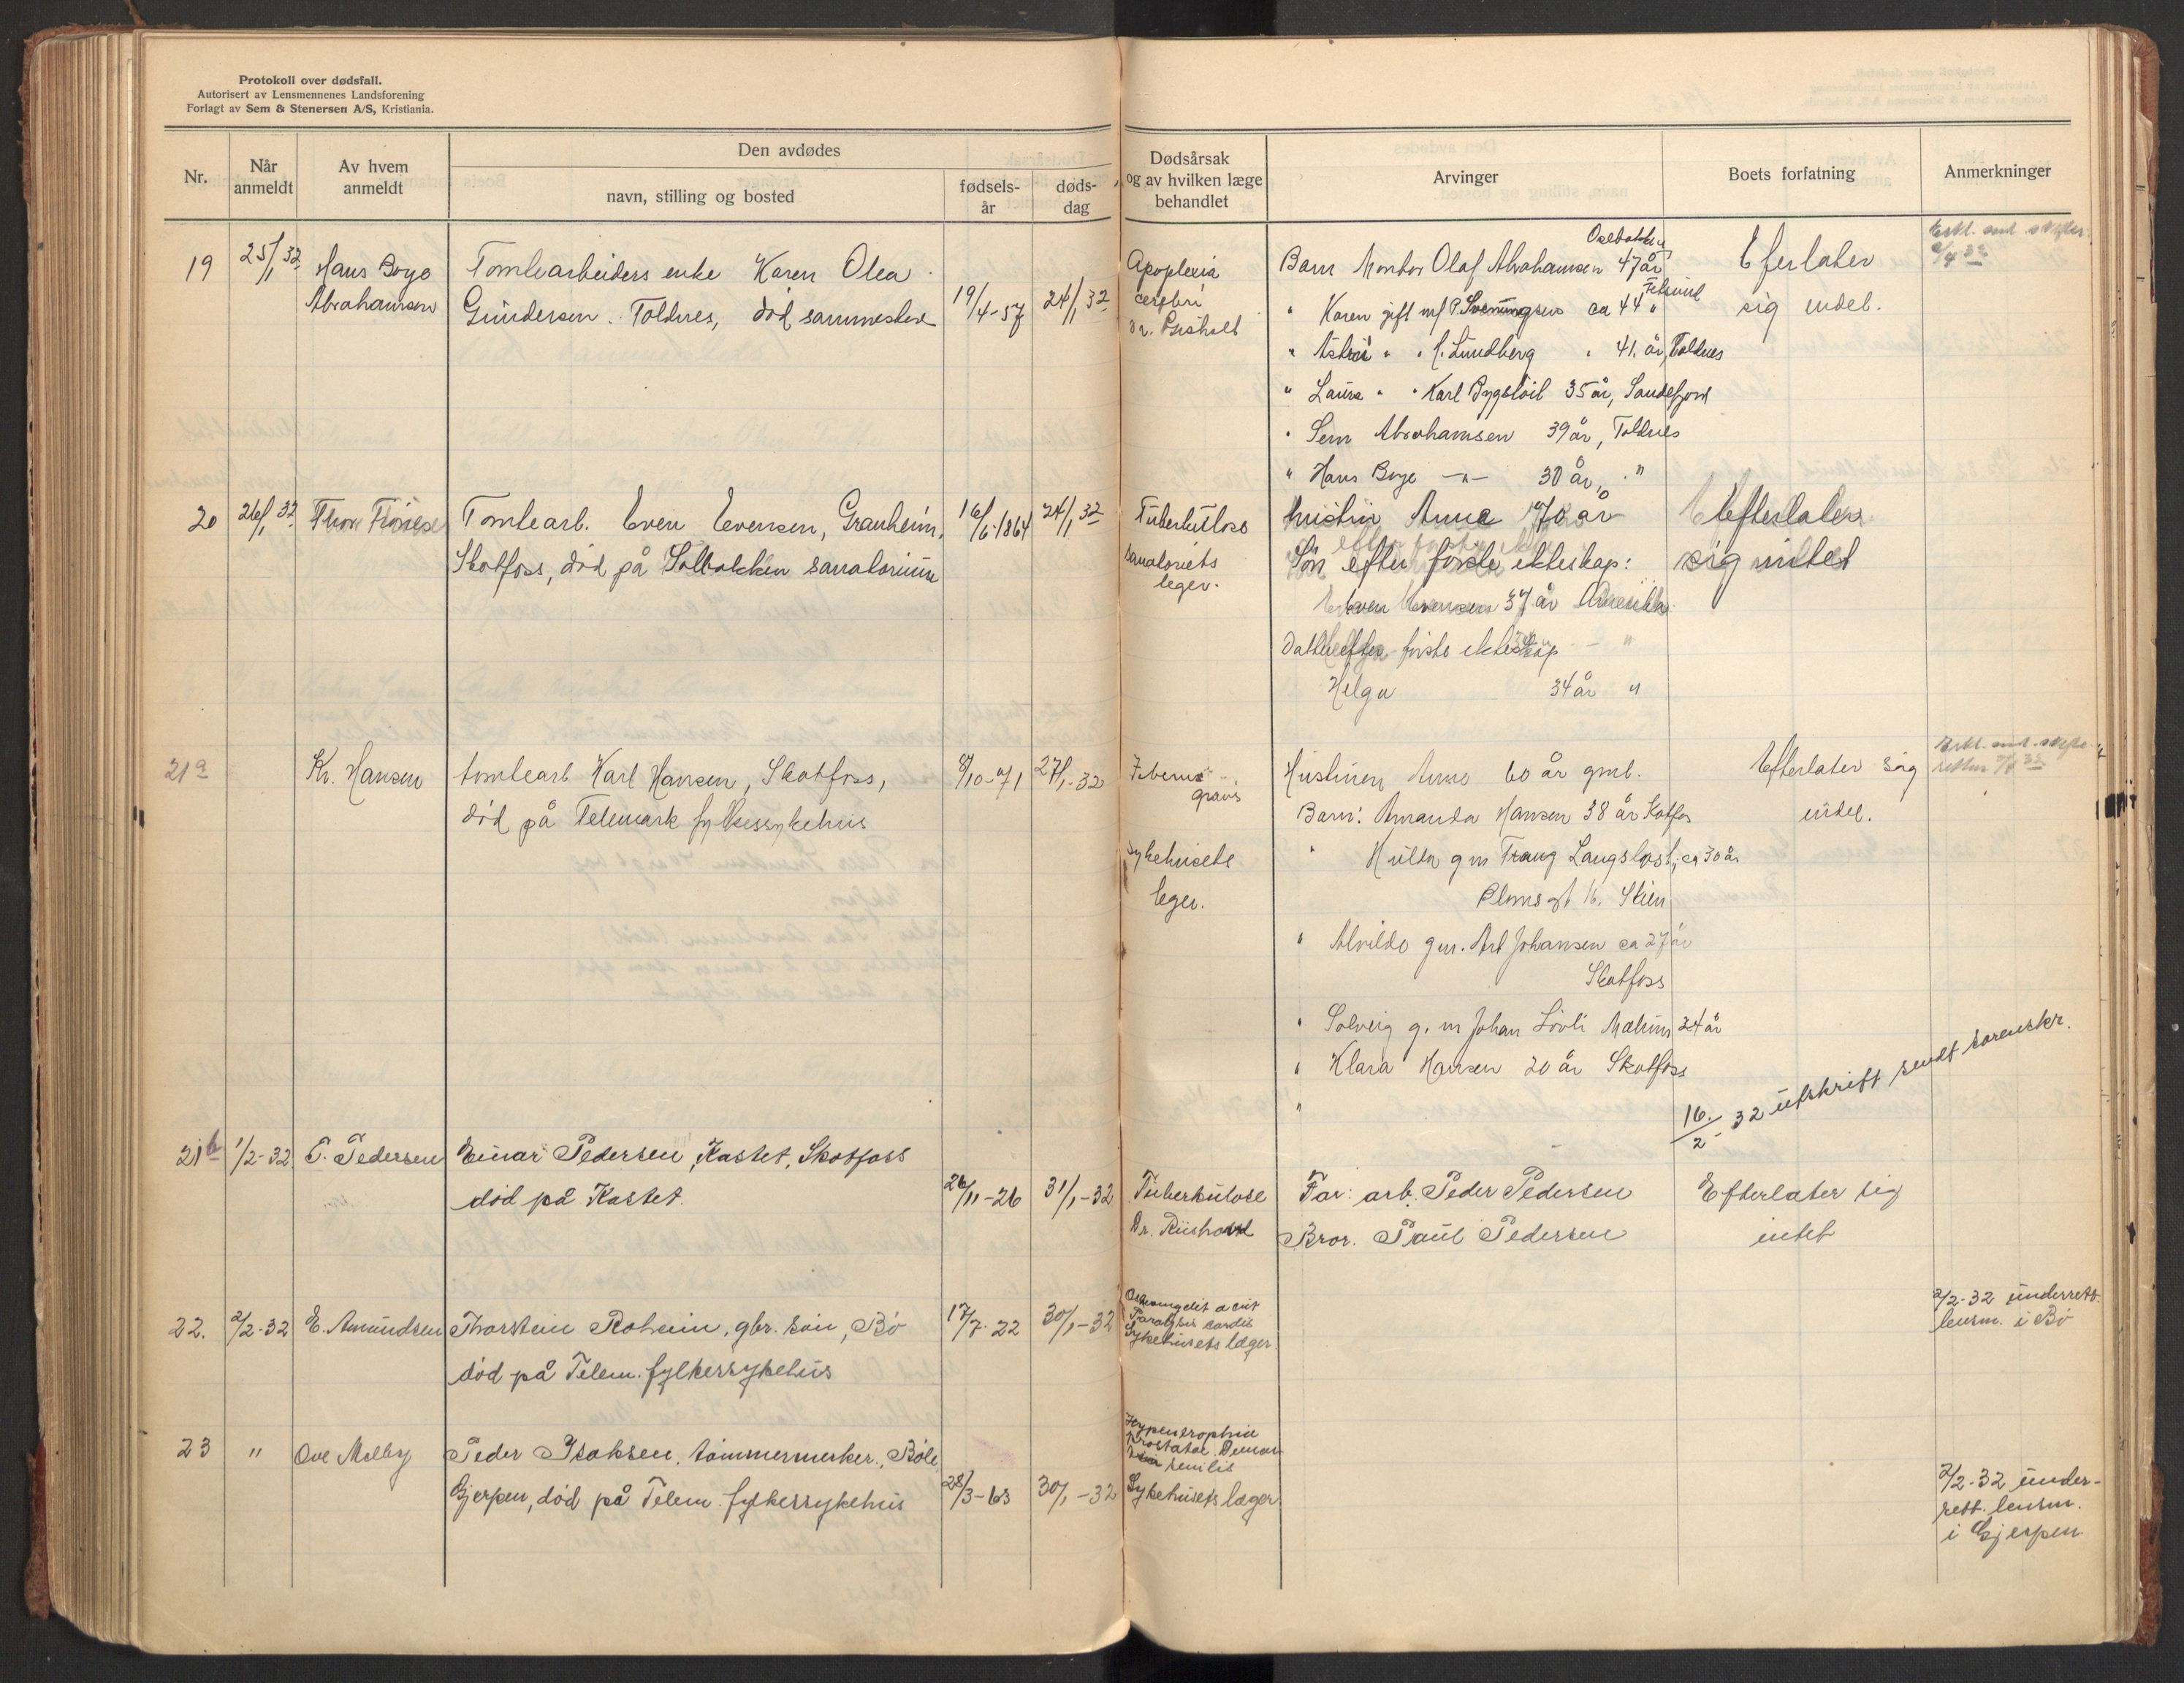 Protokoll over dødsfall.
Autorisert av Lensmennenes Landsforening
Forlagt av Sem & Stenersen A/S, Kristiania.
Nr.
Når anmeldt
Av hvem anmeldt
Den avdødes
navn, stilling og bosted
fødsels-år
døds-dag
Dødsårsak og av hvilken læge behandlet
Arvinger
Boets forfatning
Anmerkninger
19 25/1 32 Hans Boye Abrahamsen
Tomtearbeiders enke Karen Olea
Gundersen. Toldnes, død sammesteds
19/4-57 24/1 32
Apoplexia
cerebri
Dr. Riisholt
Barn Montør Olaf Abrahamsen 47 år
" Karen gift m/ P. Sveningsen ca 44 "
" " " Lundberg " 41. år, Toldnes
" Laura " " Karl 35 år, Sandefjord
" Sem Abrahamsen 39 år, Toldnes
" Hans Boye -"- 30 år, "
Efterlater
sig intet.
20 26/1 32
Tomtearb. Even Evensen, Granheim,
Skotfoss, død på Solbakken sanatorium
16/6 1864 24/1 32
Tuberkulose
sanatoriets
leger.
Hustru Anna 70 år
Søn efter første ekteskap:
Even Evensen 37 år Amerika
Datter efter første ekteskap "
Helga 34 år "
Efterlater
sig intet
21a Kr. Hansen
tomtearb Karl Hansen, Skotfoss,
død på Telemark fylkessykehus
8/10-71 27/1-32
gravis
sykehusets
leger.
Hustruen Anna 60 år gml.
Barn: Amanda Hansen 38 år Skotfos
" Hulda g m Langslost, ca 30 år
16. Skien
" Alvilde g m. Johansen ca 27 år
Skotfoss
" Solveig g. m Johan Løvli Mælum 24 år
" Klara Hansen 20 år Skotfoss
"
Efterlater sig
intet.
16./2-32 utskrift sendt sorenskr.
21b 1/2-32 P. Pedersen
Einar Pedersen, Kastet, Skotfoss
død på Kastet.
26/11-26 31/1-32
Tuberkulose
Dr. Riisholt
Far: arb. Peder Pedersen
Bror. Paul Pedersen
Efterlater sig
intet
22. 2/2-32 E. Amundsen
Thorstein Roheim, gbr. søn, Bø
død på Telem. fylkessykehus
17/7-22 30/1-32
acut
Paralysis cordis
Sykehusets læger.
2/2-32 underrett.
lensm. i Bø
23 " Ove Melby
Peder Isaksen, tømmermerker, Bøle,
Gjerpen, død på Telem. fylkessykehus
28/3-63 30/1-32
Hypertrophia
prostatae
senilis
Sykehusets læger
2/2-32 under-
rett. lensm.
i Gjerpen